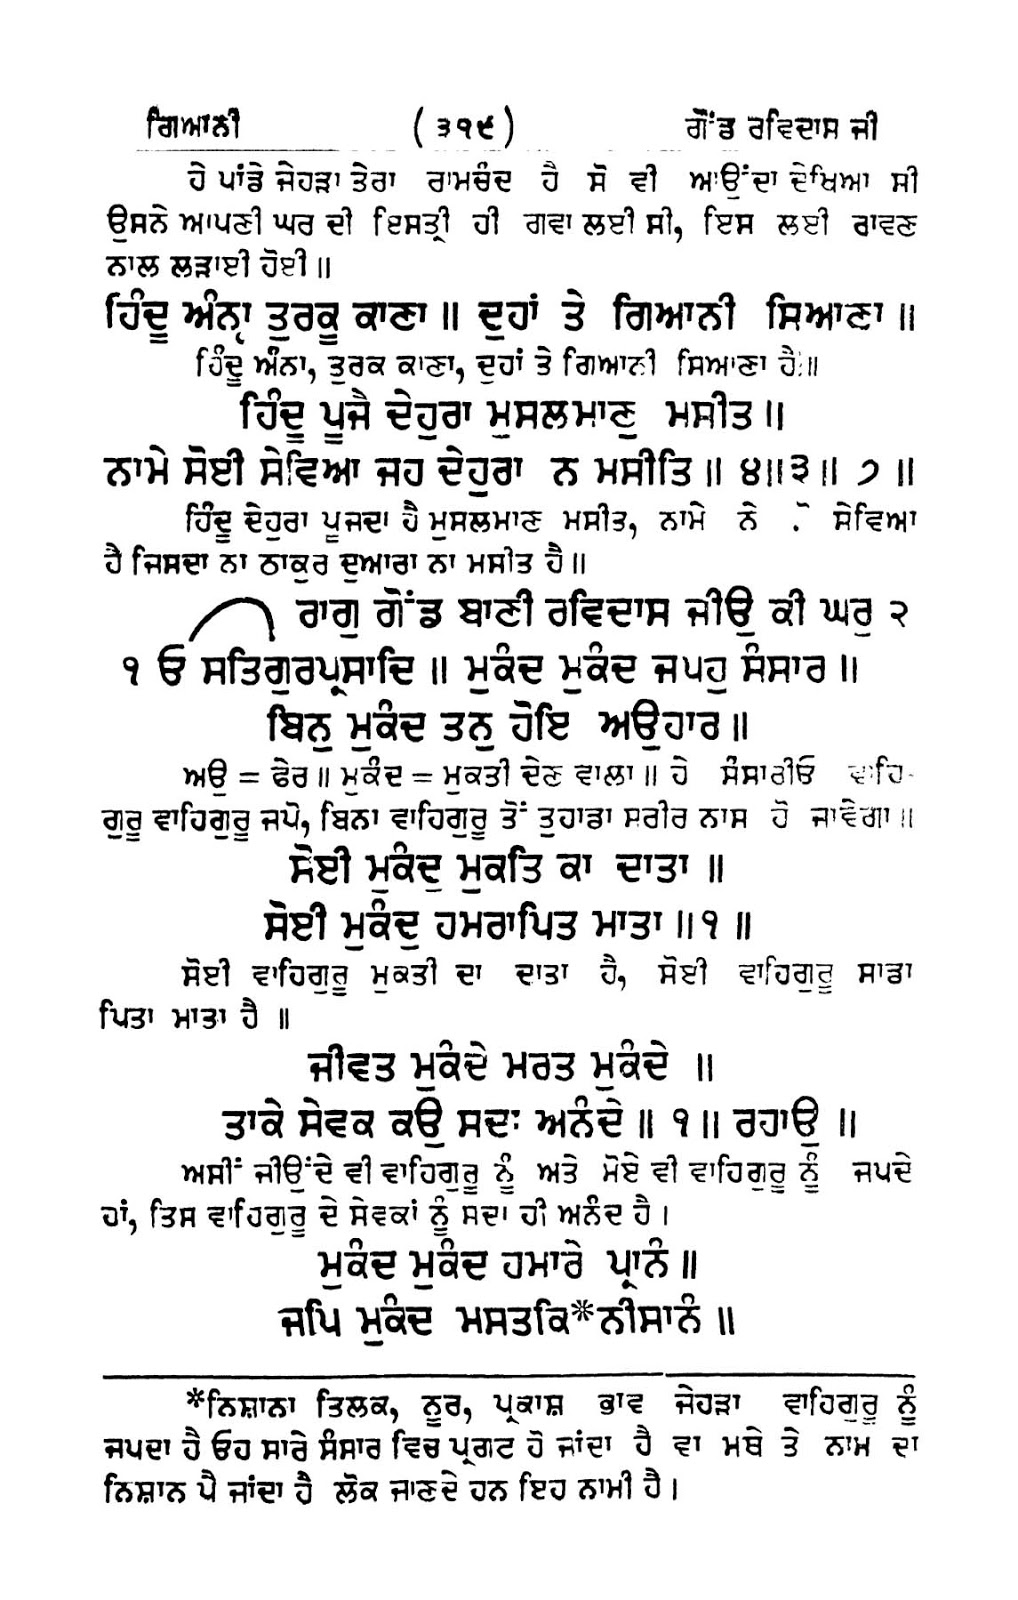 ਗਿਆਨੀ (੩੧੯) ਗੌਂਡ ਰਵਿਦਾਸ ਜੀ
ਹੇ ਪਾਂਡੇ ਜੇਹੜਾ ਤੇਰਾ ਰਾਮਚੰਦ ਹੈ ਸੋ ਵੀ ਆਉਂਦਾ ਦੇਖਿਆ ਸੀ
ਉਸਨੇ ਆਪਣੀ ਘਰ ਦੀ ਇਸਤ੍ਰੀ ਹੀ ਗਵਾ ਲਈ ਸੀ, ਇਸ ਲਈ ਰਾਵਣ
ਨਾਲ ਲੜਾਈ ਹੋਈ॥
ਹਿੰਦੂ ਅੰਨ੍ਹਾ ਤੁਰਕੂ ਕਾਣਾ॥ ਦੁਹਾਂ ਤੇ ਗਿਆਨੀ ਸਿਆਣਾ॥
ਹਿੰਦੂ ਅੰਨਾ, ਤੁਰਕ ਕਾਣਾ, ਦੁਹਾਂ ਤੇ ਗਿਆਨੀ ਸਿਆਣਾ ਹੈ॥
ਹਿੰਦੂ ਪੂਜੈ ਦੇਹੁਰਾ ਮੁਸਲਮਾਣੁ ਮਸੀਤ॥
ਨਾਮੇ ਸੋਈ ਸੇਵਿਆ ਜਹ ਦੇਹੁਰਾ ਨ ਮਸੀਤਿ॥ ੪॥੩॥ ੭॥
ਹਿੰਦੂ ਦੇਹੁਰਾ ਪੂਜਦਾ ਹੈ ਮੁਸਲਮਾਣ ਮਸੀਤ, ਨਾਮੇ ਨੇ ਸੇਵਿਆ
ਹੈ ਜਿਸਦਾ ਨਾ ਠਾਕੁਰ ਦੁਆਰਾ ਨਾ ਮਸੀਤ ਹੈ॥
ਰਾਗੁ ਗੋਂਡ ਬਾਣੀ ਰਵਿਦਾਸ ਜੀਉ ਕੀ ਘਰੁ ੨
੧ ਓ ਸਤਿਗੁਰਪ੍ਰਸਾਦਿ॥ ਮੁਕੰਦ ਮੁਕੰਦ ਜਪਹੁ ਸੰਸਾਰ॥
ਬਿਨੁ ਮੁਕੰਦ ਤਨੁ ਹੋਇ ਅਉਹਾਰ॥
ਅਉ = ਫੇਰ॥ ਮੁਕੰਦ = ਮੁਕਤੀ ਦੇਣ ਵਾਲਾ॥ ਹੇ ਸੰਸਾਰੀਓ ਵਾਹਿ-
ਗੁਰੂ ਵਾਹਿਗੁਰੂ ਜਪੋ, ਬਿਨਾ ਵਾਹਿਗੁਰੂ ਤੋਂ ਤੁਹਾਡਾ ਸਰੀਰ ਨਾਸ ਹੋ ਜਾਵੇਗਾ॥
ਸੋਈ ਮੁਕੰਦੁ ਮੁਕਤਿ ਕਾ ਦਾਤਾ॥
ਸੋਈ ਮੁਕੰਦੁ ਹਮਰਾਪਿਤ ਮਾਤਾ॥੧॥
ਸੋਈ ਵਾਹਿਗੁਰੂ ਮੁਕਤੀ ਦਾ ਦਾਤਾ ਹੈ, ਸੋਈ ਵਾਹਿਗੁਰੂ ਸਾਡਾ
ਪਿਤਾ ਮਾਤਾ ਹੈ॥
ਜੀਵਤ ਮੁਕੰਦੇ ਮਰਤ ਮੁਕੰਦੇ॥
ਤਾਕੇ ਸੇਵਕ ਕਉ ਸਦਾ ਅਨੰਦੇ॥ ੧॥ ਰਹਾਉ॥
ਅਸੀਂ ਜੀਉਂਦੇ ਵੀ ਵਾਹਿਗੁਰੂ ਨੂੰ ਅਤੇ ਮੋਏ ਵੀ ਵਾਹਿਗੁਰੂ ਨੂੰ ਜਪਦੇ
ਹਾਂ, ਤਿਸ ਵਾਹਿਗੁਰੂ ਦੇ ਸੇਵਕਾਂ ਨੂੰ ਸਦਾ ਹੀ ਅਨੰਦ ਹੈ।
ਮੁਕੰਦ ਮੁਕੰਦ ਹਮਾਰੇ ਪ੍ਰਾਨੰ॥
ਜਪਿ ਮੁਕੰਦ ਮਸਤਕਿ*ਨੀਸਾਨੰ॥
*ਨਿਸ਼ਾਨਾ ਤਿਲਕ, ਨੂਰ, ਪ੍ਰਕਾਸ਼ ਭਾਵ ਜੇਹੜਾ ਵਾਹਿਗੁਰੂ ਨੂੰ
ਜਪਦਾ ਹੈ ਓਹ ਸਾਰੇ ਸੰਸਾਰ ਵਿਚ ਪ੍ਰਗਟ ਹੋ ਜਾਂਦਾ ਹੈ ਵਾ ਮਥੇ ਤੇ ਨਾਮ ਦਾ
ਨਿਸ਼ਾਨ ਪੈ ਜਾਂਦਾ ਹੈ ਲੋਕ ਜਾਣਦੇ ਹਨ ਇਹ ਨਾਮੀ ਹੈ।